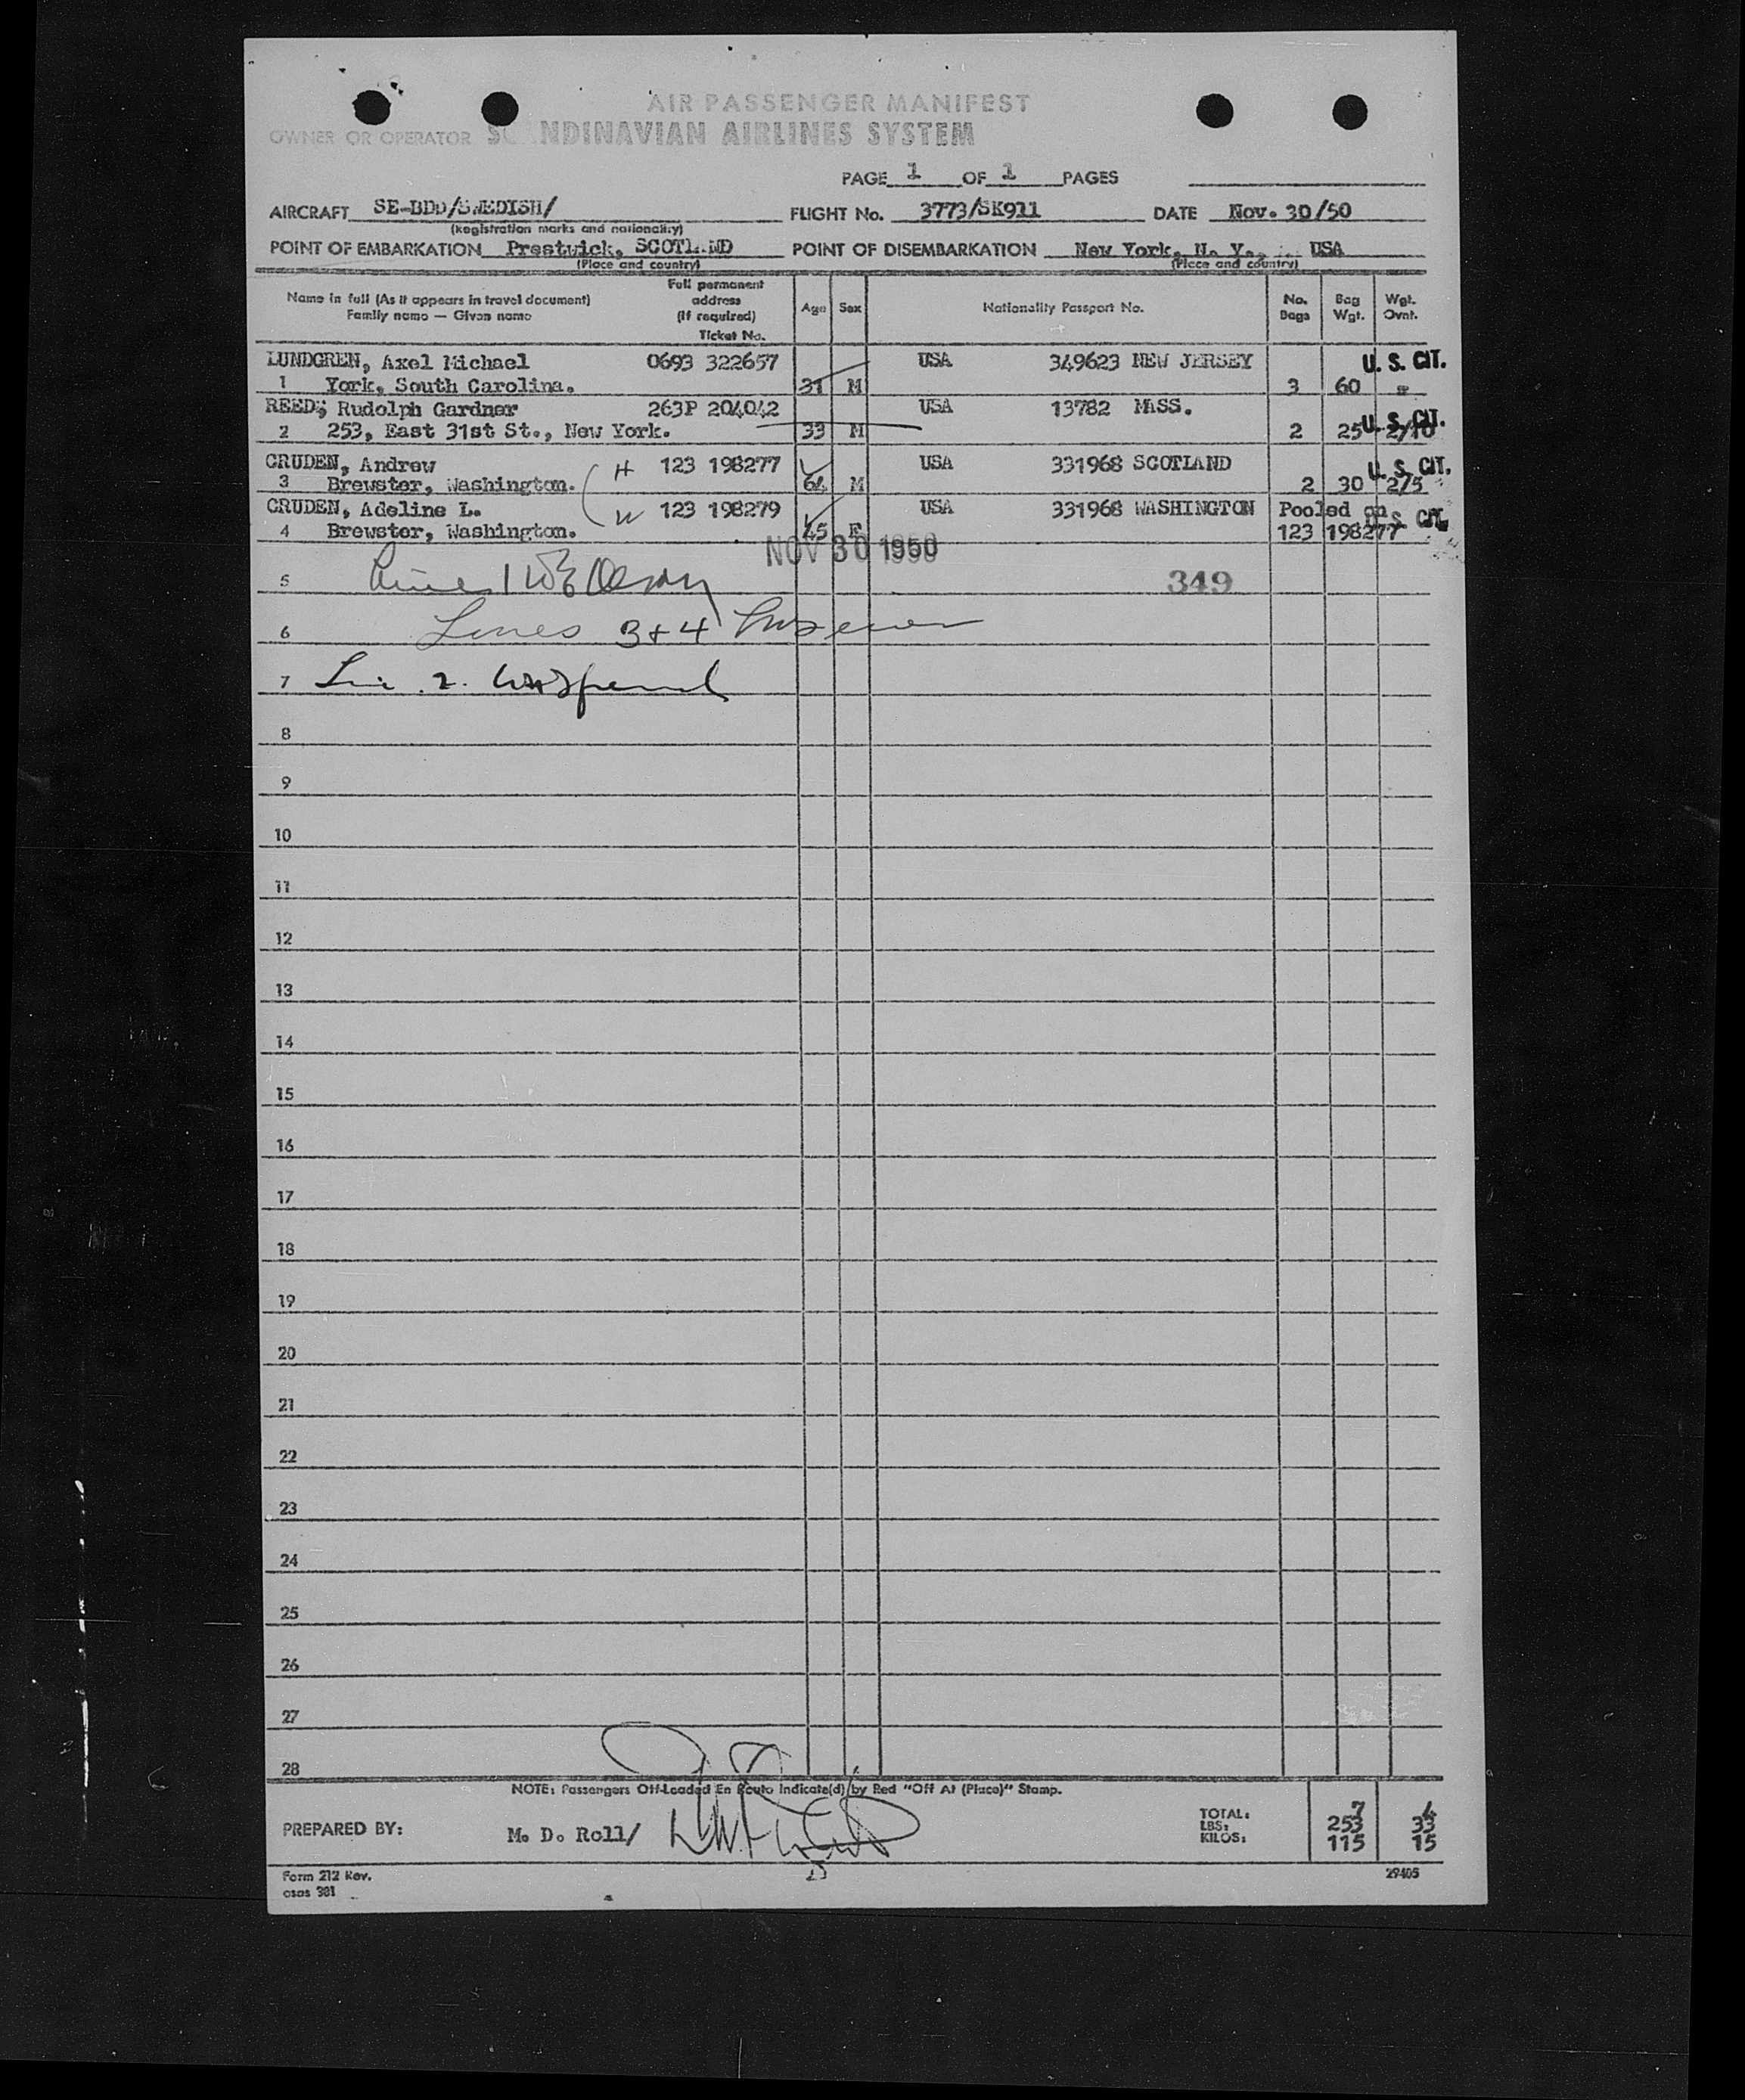 AIR PASSENGER MANIFEST
OWNER OR OPERATOR SC NDINAVIAN AIRLINES SYSTEM
PAGE 1 OF 1 PAGES
AIRCRAFT SE-BDD/SWEDISH/ FLIGHT No. 3773/SK911 DATE Nov. 30/50
(Registration marks and nationality)
POINT OF EMBARKATION Prestwick, SCOTLAND POINT OF DISEMBARKATION New York, N. Y., USA
(Place and country) (Place and country)
Name in full (As it appears in travel document) Family name — Given name Full permanent address (If required) Ticket No. Age Sex Nationality Passport No. No. Bags Bag Wgt. Wgt. Ovnt.
LUNDGREN, Axel Michael 0693 322657 USA 349623 NEW JERSEY U. S. CIT.
1 York, South Carolina. 31 M 3 60
REED, Rudolph Gardner 263P 204042 USA 13782 MISS. U. S. CIT.
2 253, East 31st St., New York. 33 M 2 25 2/10
CRUDEN, Andrew H 123 198277 USA 331968 SCOTLAND U. S. CIT.
3 Brewster, Washington. 64 M 2 30 2/5
CRUDEN, Adeline L. W 123 198279 USA 331968 WASHINGTON Pooled on U. S. CIT.
4 Brewster, Washington. 45 F 123 198277
NOV 30 1950
5 349
6 Lines 3+4
7 2.
8
9
10
11
12
13
14
15
16
17
18
19
20
21
22
23
24
25
26
27
28
NOTE: Passengers Off-Loaded En Route Indicate(d) by Red "Off At (Place)" Stamp.
PREPARED BY: M. D. Roll/
TOTAL: 7 4
LBS: 253 33
KILOS: 115 15
Form 212 Rev. 29405
osas 381